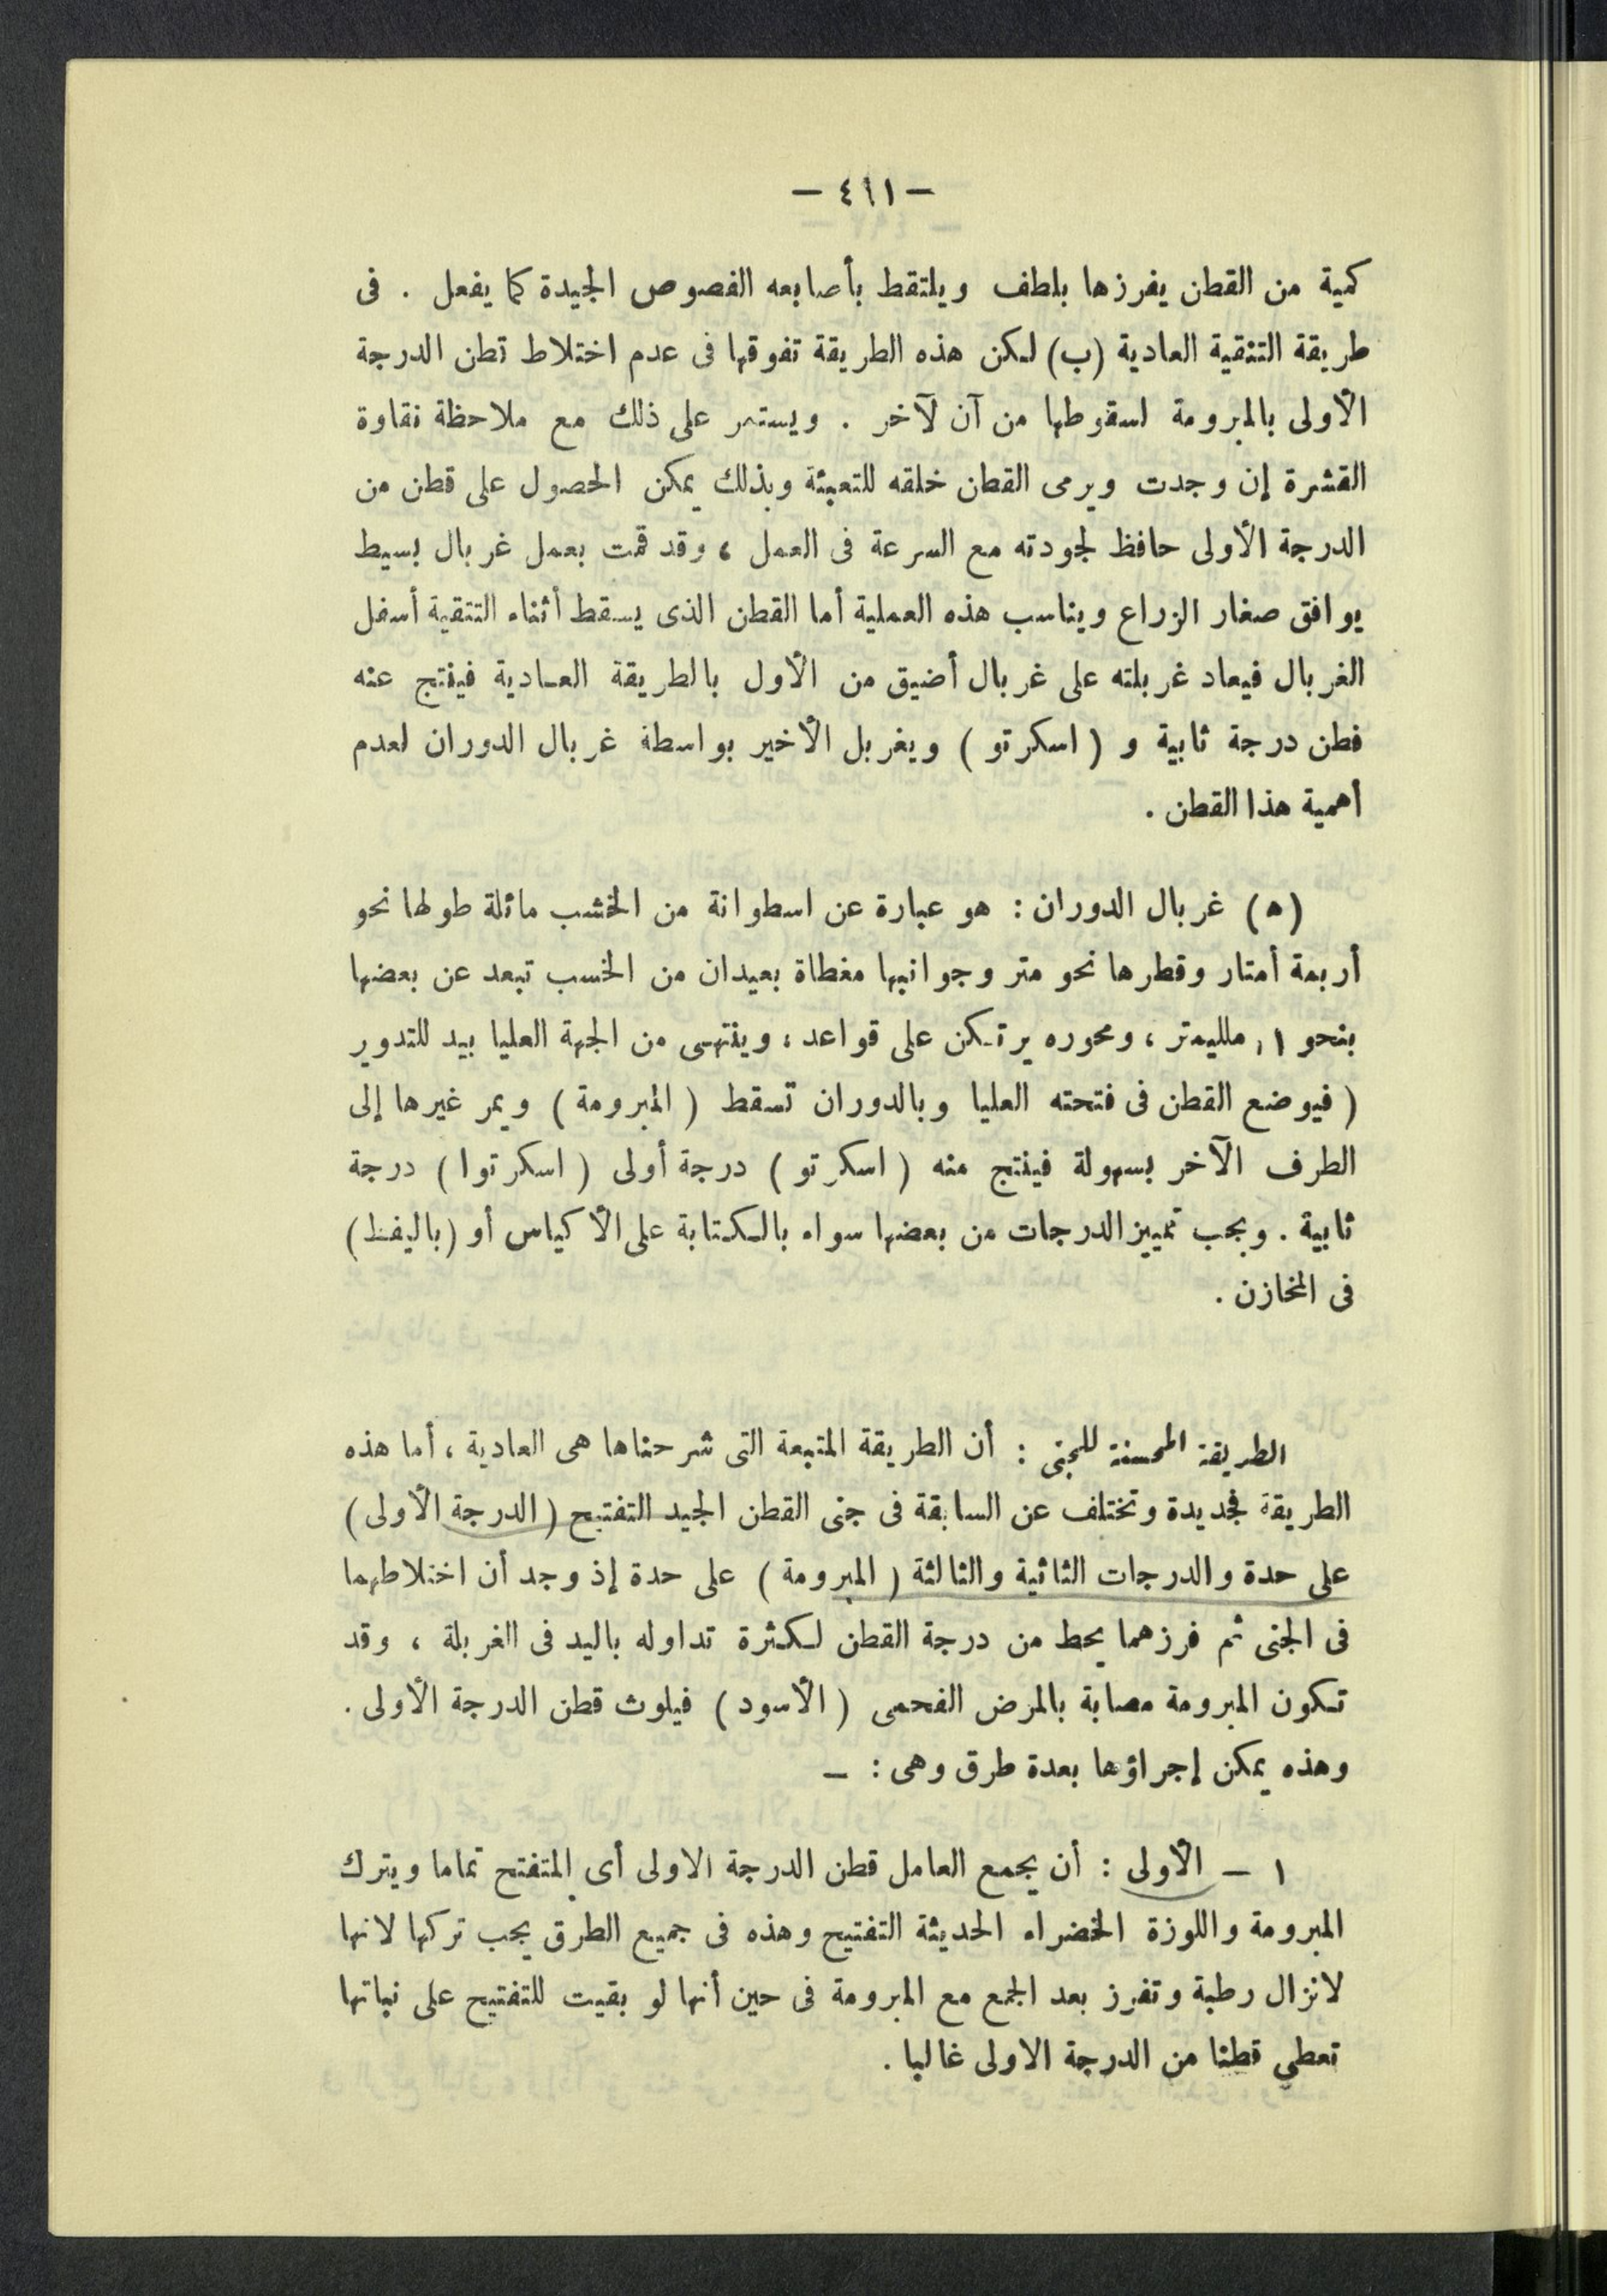 — ٤٦١ —
كمية من القطن يفرزها بلطف ويلتقط بأصابعه الفصوص الجيدة كما يفعل . فى
طريقة التنقية العادية (ب) لكن هذه الطريقة تفوقها فى عدم اختلاط قطن الدرجة
الأولى بالمبرومة لسقوطها من آن لآخر . ويستمر على ذلك مع ملاحظة نقاوة
القشرة إن وجدت ويرمى القطن خلقه للتعبئة وبذلك يمكن الحصول على قطن من
الدرجة الأولى حافظ لجودته مع السرعة فى العمل ، وقد قمت بعمل غربال بسيط
يوافق صغار الزراع ويناسب هذه العملية أما القطن الذى يسقط أثناء التنقية أسفل
الغربال فيعاد غربلته على غربال أضيق من الأول بالطريقة العادية فينتج عنه
قطن درجة ثانية و ( اسكرتو ) ويغربل الأخير بواسطة غربال الدوران لعدم
أهمية هذا القطن .
(ه) غربال الدوران : هو عبارة عن اسطوانة من الخشب مائلة طولها نحو
أربعة أمتار وقطرها نحو متر وجوانبها مغطاة بعيدان من الخسب تبعد عن بعضها
بنحو ١, ملليمتر ، ومحوره يرتكن على قواعد ، وينتهى من الجهة العليا بيد للتدوير
( فيوضع القطن فى فتحته العليا وبالدوران تسقط ( المبرومة ) ويمر غيرها إلى
الطرف الآخر بسهولة فينتج منه ( اسكرتو ) درجة أولى ( اسكرتوا ) درجة
ثانية . ويجب تمييز الدرجات من بعضها سواء بالكتابة على الأكياس أو (باليفظ)
فى المخازن .
الطريقة المحسنة للجنى : أن الطريقة المتبعة التى شرحناها هى العادية ، أما هذه
الطريقة فجديدة وتختلف عن السابقة فى جنى القطن الجيد التفتيح ( الدرجة الأولى )
على حدة والدرجات الثانية والثالثة ( المبرومة ) على حدة إذ وجد أن اختلاطهما
فى الجنى ثم فرزهما يحط من درجة القطن لكثرة تداوله باليد فى الغربلة ، وقد
تكون المبرومة مصابة بالمرض الفحمى ( الأسود ) فيلوث قطن الدرجة الأولى .
وهذه يمكن إجراؤها بعدة طرق وهى : —
١ — الأولى : أن يجمع العامل قطن الدرجة الاولى أى المتفتح تماما ويترك
المبرومة واللوزة الخضراء الحديثة التفتيح وهذه فى جميع الطرق يجب تركها لانها
لاتزال رطبة وتفرز بعد الجمع مع المبرومة فى حين أنها لو بقيت للتفتيح على نباتها
تعطي قطنا من الدرجة الاولى غالبا .